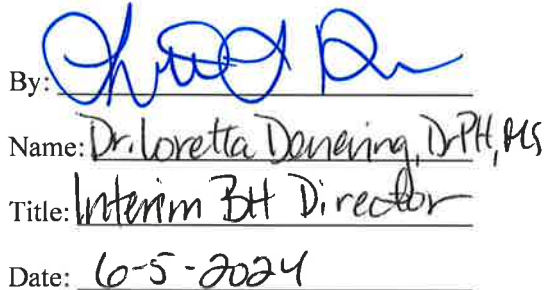 By:
Name: Dr. Loretta Denering, DrPH, MS
Title: Interim BH Director
Date: 6-5-2024